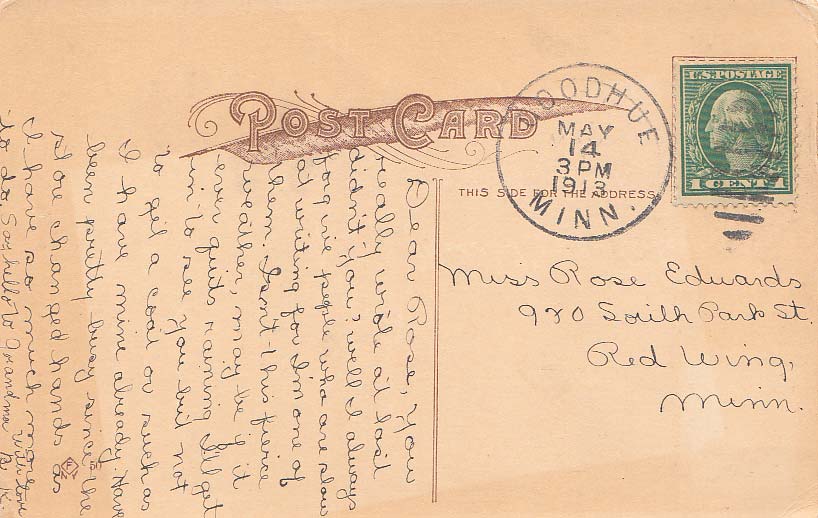 POST CARD
THIS SIDE FOR THE ADDRESS
GOODHUE
MAY
14
3 PM
1913
MINN.
U.S. POSTAGE
1 CENT 1
Miss Rose Edwards
920 South Park St.
Red Wing,
Minn.
Dear Rose, You
really wrote at last
didn't you? well I always
forgive people who are slow
at writing for I'm one of
them. Isn't this fierce
weather, may be if it
ever quits raining I'll get
in to see you but not
to get a coat or such as
I have mine already. Have
been pretty busy since the
store changed hands as
I have so much more
to do. Say hello to Grandma
With love
B. K.